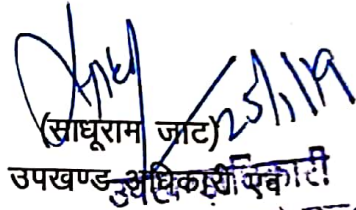 25/1/19
(साधूराम जाट)
उपखण्ड अधिकारी एवं